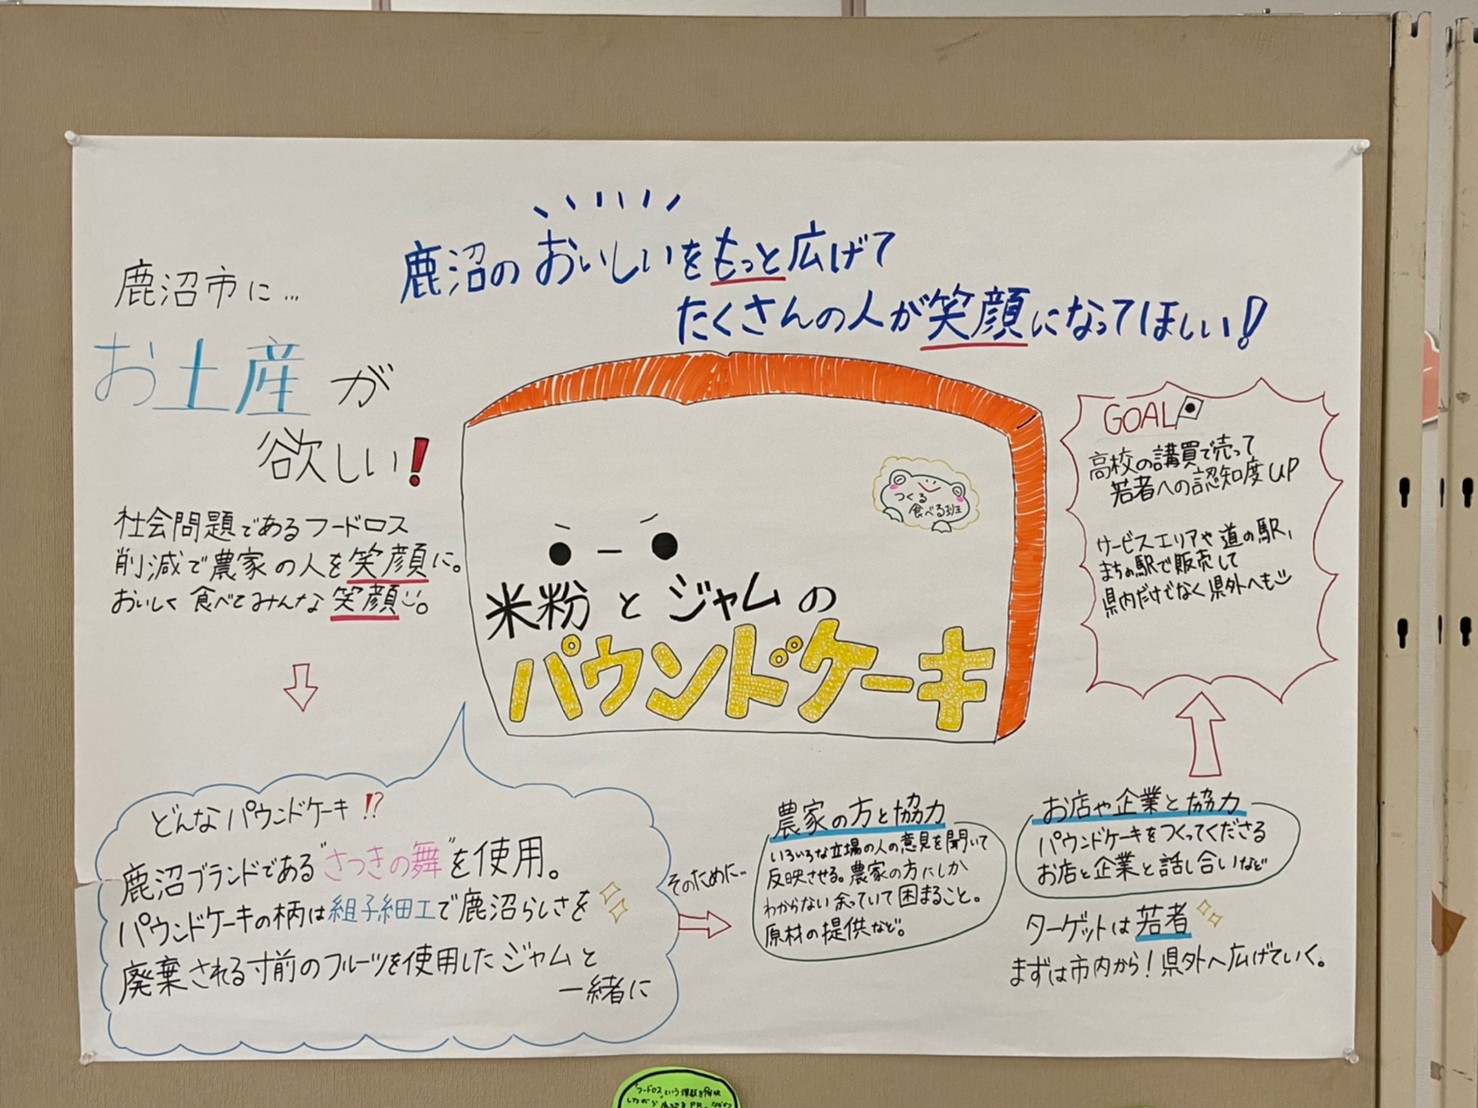 鹿沼のおいしいをもっと広げて
たくさんの人が笑顔になってほしい!
鹿沼市に…
お土産が
欲しい!
社会問題であるフードロス
削減で農家の人を笑顔に。
おいしく食べてみんな笑顔。
つくる
食べる班
米粉とジャムの
パウンドケーキ
GOAL
高校の講買で売って
若者への認知度UP
サービスエリアや道の駅,
まちの駅で販売して
県内だけでなく県外へも
どんなパウンドケーキ!?
鹿沼ブランドである"さつきの舞"を使用。
パウンドケーキの柄は組子細工で鹿沼らしさを
廃棄される寸前のフルーツを使用したジャムと
一緒に
そのために…
農家の方と協力
いろいろな立場の人の意見を聞いて
反映させる。農家の方にしか
わからない余っていて困まること。
原材の提供など。
お店や企業と協力
パウンドケーキをつくってくださる
お店と企業と話し合いなど
ターゲットは若者
まずは市内から!県外へ広げていく。